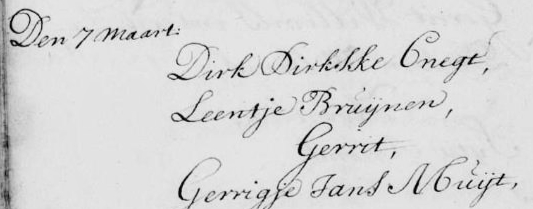 Den 7 Maart:
Dirk Dirkske Cnegt,
Leentje Bruijnen,
Gerrit,
Gerrigje Jans Muijt,